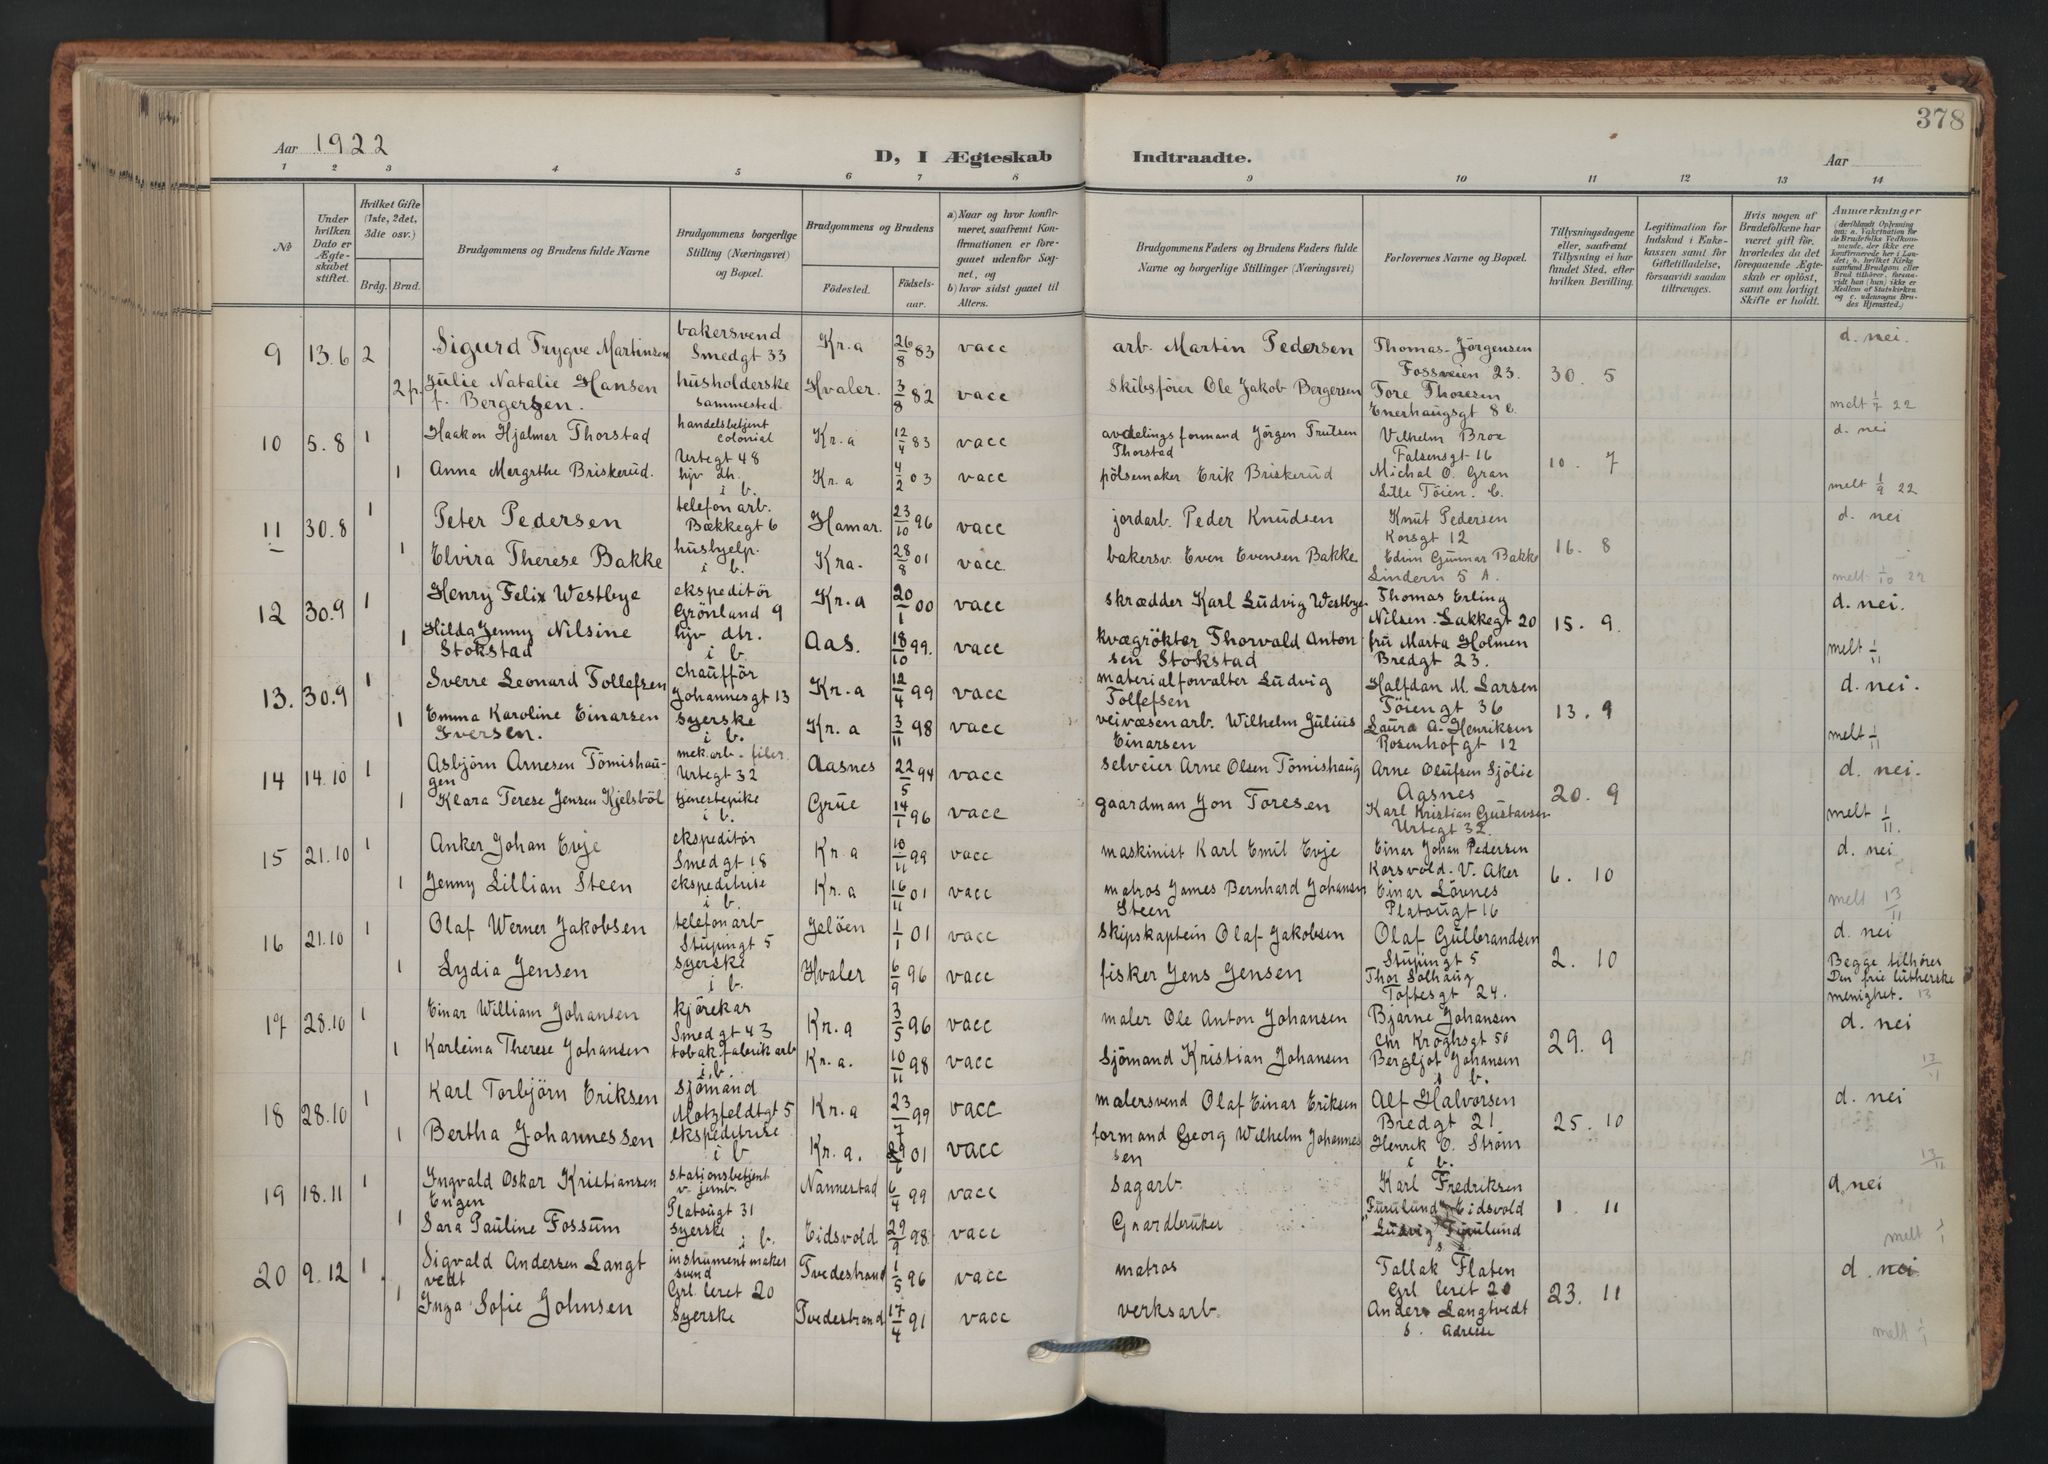 378
Aar 1922
D, I Ægteskab Indtraadte.
Aar
1 2 3 4 5 6 7 8 9 10 11 12 13 14
No
Under hvilken Dato er Ægteskabet stiftet.
Hvilket Gifte (1ste, 2det, 3dte osv.)
Brdg. Brud.
Brudgommens og Brudens fulde Navne
Brudgommens borgerlige Stilling (Næringsvei) og Bopæl.
Brudgommens og Brudens
Fødested. Fødselsaar.
a) Naar og hvor konfirmeret, saafremt Konfirmationen er foregaaet udenfor Sognet, og
b) hvor sidst gaaet til Alters.
Brudgommens Faders og Brudens Faders fulde Navne og borgerlige Stillinger (Næringsvei)
Forlovernes Navne og Bopæl.
Tillysningsdagene eller, saafremt Tillysning ei har fundet Sted, efter hvilken Bevilling.
Legitimation for Indskud i Enkekassen samt for Giftetilladelse, forsaavidt saadan tiltrænges.
Hvis nogen af Brudefolkene har været gift før, hvorledes da det foregaaende Ægteskab er opløst, samt om lovligt Skifte er holdt.
Anmærkninger (deriblandt Oplysning om: a. Vakcination for de Brudefolks Vedkommende, der ikke ere konfirmerede her i Landet; b. hvilket Kirkesamfund Brudgom eller Brud tilhører, forsaavidt han (hun) ikke er Medlem af Statskirken og c. udensogns Brudes Hjemsted.)
9 13.6 2 Sigurd Trygve Martinsen bakersvend Smedgt 33 Kr.a 26/8 83 vacc arb. Martin Pedersen Thomas Jörgensen Fossveien 23. 30. 5 d. nei.
2 p. Julie Natalie Hansen f. Bergersen. husholderske sammested. Hvaler. 3/8 82 vacc skibsförer Ole Jakob Bergersen Tore Thoresen Enerhaugsgt 8 b. melt 1/7 22
10 5.8 1 Haakon Hjalmar Thorstad handelsbetjent colonial Urtegt 48 Kr.a 12/4 83 vacc avdelingsformand Jörgen Trulsen Thorstad Vilhelm Broe Falsensgt 16 10. 7 d. nei
1 Anna Mergrthe Briskerud. hjv dh. i b. Kr.a 4/2 03 vacc pölsemaker Erik Briskerud Michal O. Gran Lille Töien. b. melt 1/9 22
11 30.8 1 Peter Pedersen telefon arb. Bækkegt 6 Hamar. 23/10 96 vacc jordarb. Peder Knudsen Knut Pedersen Korsgt 12 16. 8 d. nei
1 Elvira Therese Bakke hushjelp. i b. Kra. 28/8 01 vacc. bakersv. Even Evensen Bakke Edvin Gunnar Bakke Lindern 5 A. melt 1/10 22
12 30.9 1 Henry Felix Westbye ekspeditör Grönland 9 Kr.a 20/1 00 vacc skrædder Karl Ludvig Westbye Thomas Erling Nilsen. Lakkegt 20 15. 9. d. nei.
1 Hilda Jenny Nilsine Stokstad hjv dtr. i b. Aas. 18/10 99. vacc kvægrökter Thorvald Antonsen Stokstad fru Marta Holmen Bredgt 23. melt 1/11
13. 30.9 1 Sverre Leonard Tollefsen chaufför Johannesgt 13 Kr.a 12/4 99 vacc materialforvalter Ludvig Tollefsen Halfdan M. Larsen Töiengt 36 13. 9 d. nei.
1 Emma Karoline Einarsen Iversen. syerske i b. Kr.a 3/11 98 vacc veivæsenarb. Wilhelm Julius Einarsen Laura A. Henriksen Rosenhofgt 12 melt 1/11
14 14.10 1 Asbjörn Arnesen Tömishaugen mek.arb. filer. Urtegt 32 Aasnes 22/5 94 vacc selveier Arne Olsen Tömishaug Arne Olufsen Sjölie Aasnes 20. 9 d. nei.
1 Klara Terese Jensen Kjelsböl tjenestepike i b. Grue 14/1 96 vacc gaardman Jon Toresen Karl Kristian Gustavsen Urtegt 32. melt 1/11.
15 21.10 1 Anker Johan Evje ekspeditör Smedgt 18 Kr.a 10/11 99 vacc maskinist Karl Emil Evje Einar Johan Pedersen Korsvold. V. Aker 6. 10 d. nei
1 Jenny Lillian Steen ekspeditrise i b. Kr.a 16/11 01 vacc matros James Bernhard Johansen Steen Einar Lövnes Platougt 16 melt 13/11
16 21.10 1 Olaf Werner Jakobsen telefonarb Stupingt 5 Jelöen 1/1 01 vacc skipskaptein Olaf Jakobsen Olaf Gulbrandsen Stupingt 5 2. 10 d. nei
1 Lydia Jensen syerske i b. Hvaler 6/9 96 vacc fisker Jens Jensen Thor Solhaug Toftesgt 24. Begge tilhörer Den frie lutherske menighet. 13
17 28.10 1 Einar William Johansen kjörekar Smedgt 43 Kr.a 3/5 96 vacc maler Ole Anton Johansen Bjarne Johansen Chr Kroghsgt 50 29. 9 d. nei
1 Karleina Therese Johansen tobak.fabrik arb i b. Kr.a. 10/11 98 vacc Sjömand Kristian Johansen Bergljot Johansen i b. 13/11
18 28.10 1 Karl Torbjörn Eriksen Sjömand Motzfeldtgt 5 Kr.a 23/7 99 vacc malersvend Olaf Einar Eriksen Alf Halvorsen Bredgt 21 25. 10 d. nei
1 Bertha Johannessen ekspeditrise i b Kr.a. /6 01 vacc formand Georg Wilhelm Johannessen Henrik O. Ström i b. 13/11
19 18.11 1 Ingvald Oskar Kristiansen Engen stationsbetjent v. jernb. Platougt 31 Nannestad 6/4 99 vacc sagarb. Karl Fredriksen Furulund, Eidsvold 1. 11 d. nei
1 Sara Pauline Fossum syerske i b. Eidsvold 29/9 98. vacc Gaardbruker Ludvig Furulund melt 1/1
20 9.12 1 Sigvald Andersen Langtvedt instrumentmakersvend Grl. leret 20 Tvedestrand 1/5 96 vacc matros Tallak Flaten Grl leret 20 23. 11 d. nei
1 Inga Sofie Johnsen Syerske Tvedestrand 17/4 91 vacc verksarb. Anders Langtvedt s. Adresse melt 1/1